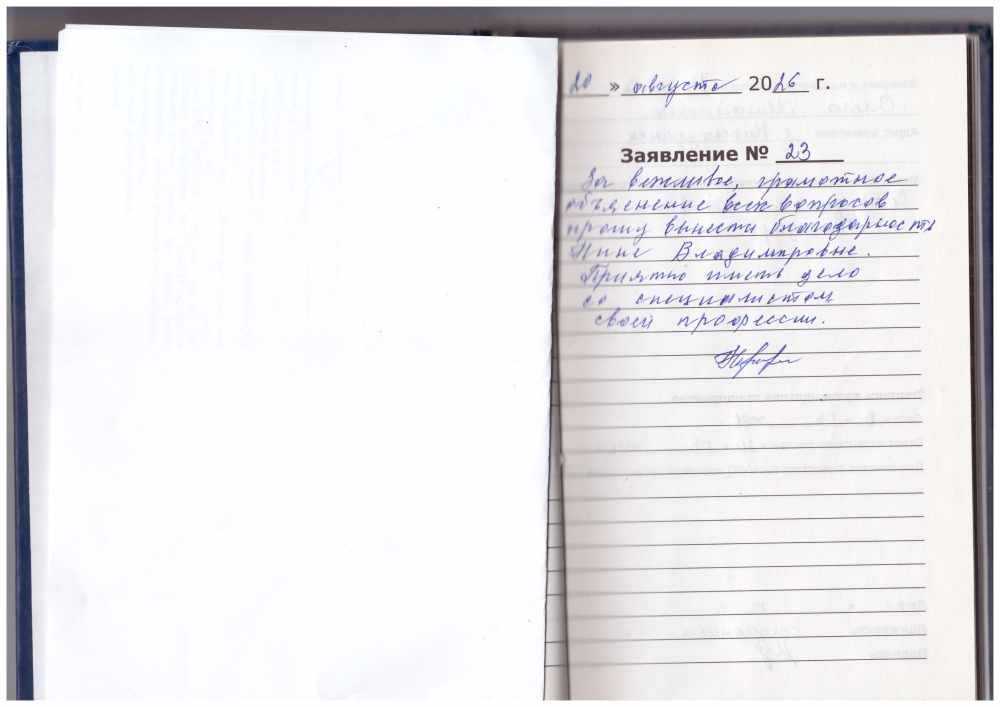 20 » августа 2026 г.
Заявление № 23
За вежливое, грамотное
объяснение всех вопросов
прошу вынести благодарность
Нине Владимировне.
Приятно иметь дело
со специалистом
своей профессии.